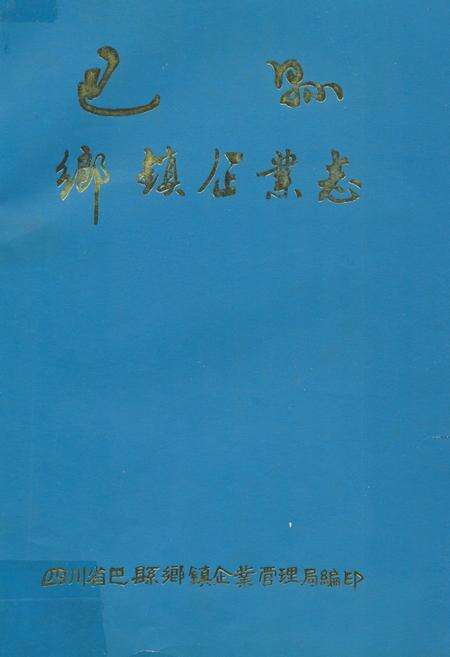 巴縣
鄉鎮企業志
四川省巴縣鄉鎮企業管理局編印